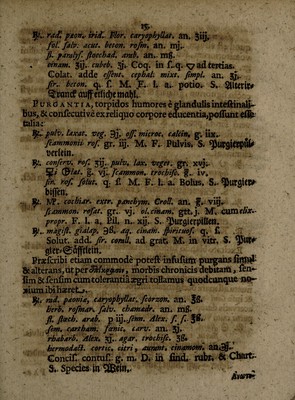 25.
℞. rad. pæon. irid. Flor. caryophyllat. an. ʒiij.
fol. salv. acut. beton. rosm. an. mj.
fl. paralys. stœchad. arab. an. mß.
vênam. ʒij. cubeb. ʒj. Coq. in s.q. ad tertias.
Colat. adde essent. cephal. mixt. simpl. an. ʒj.
sir. beton. q. s. M. F. l. a. potio. S. Alterir-
Tranck auff etliche mahl.
PURGANTIA, torpidos humores è glandulis intestinali-
bus, & consecutivè ex reliquo corpore educentia, possunt esse
talia:
℞. pulv. laxat. veg. ʒj. oss. microc. calcin. g. iix.
scammonii ros. gr. iij. M. F. Pulvis. S. Purgierpül-
verlein.
℞. conserv. ros. xij. pulv. lax. veget. gr. xvj.
gr. vj. scammon. trochisc. g. iv.
sir. ros. solut. q. s. M. F. l. a. Bolus. S. Purgier-
bissen.
℞. cochiar. extr. panchym. Croll. an. g. viij.
scammon. rosat. gr. vj. ol. cinam. gtt. j. M. cum elix.
propr. F. l. a. Pil. n. xjs. S. Purgierpillen.
℞. magist. gialap. ʒß. aq. cinam. spirituos. q. s.
Solut. add. sir. comil. ad grat. M. in vitr. S. Pur-
gier-Säfftlein.
Præscribi etiam commodè potest infusum purgans simul
& alterans, ut per morbis chronicis debitam, sen-
sim & sensim cum tolerantiâ ægri tollamus quodcunque no-
xium ibi hæret.
℞. rad. pæonia, caryophyllat. scorzon. an. ʒß.
herb. rosmar. salv. chamædr. an. mß.
fl. stœch. arab. p iij. senn. Alex. s. s. ʒß.
sem. cartham. fœnic. carv. an. ʒj.
rhabarb. Alex. xj. agar. trochisc. ʒß.
hermodact. cortic. citri, aurant. cinamom. an. ʒj.
Concis. contus. g. m. D. in sind. rubr. & Chart.
S. Species in Wein.